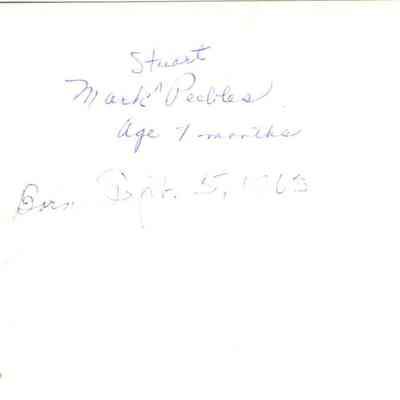 Stuart
Mark ^ Peebles
Age 7 months
Born Sept. 5, 1963